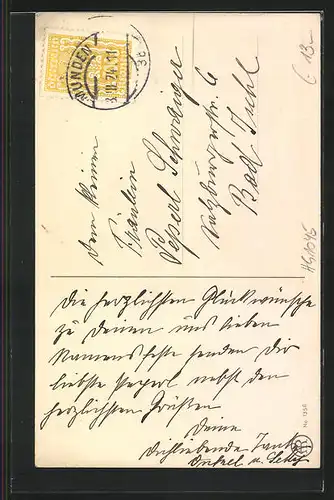 GMUNDEN
3c
8.III.24.11
Dem kleinen
Fräulein
Peperl Schwaiger
Salzburgerstr. 6
Bad Ischl
Die herzlichsten Glückwünsche
zu Deinem uns lieben
Namensfeste senden Dir
liebste Peperl nebst den
herzlichsten Grüßen
Deine
Dichliebende Tante
Onkel u.
No 1358